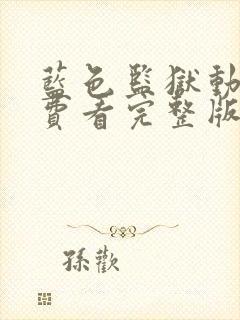 藍色監獄動
費看完整版
孫歡